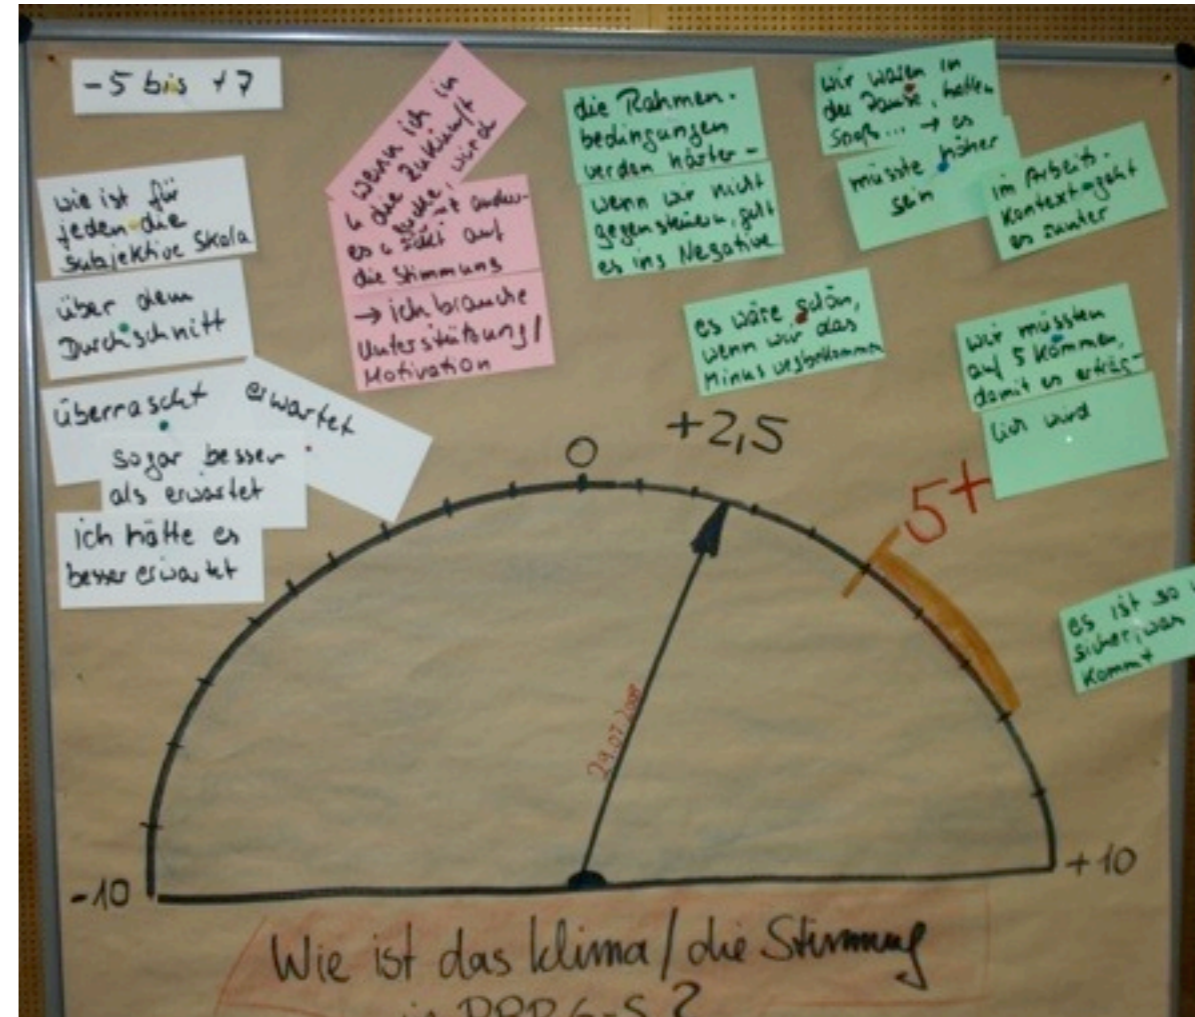 -5 bis +7
wie ist für
jeden die
subjektive Skala
über dem
Durchschnitt
überrascht
erwartet
sogar besser
als erwartet
ich hätte es
besser erwartet
wenn ich in
die Zukunft
wird
es
auf
die Stimmung
→ ich brauche
Unterstützung/
Motivation
die Rahmen-
bedingungen
werden härter -
wenn wir nicht
gegensteuern, geht
es ins Negative
wir waren in
der Pause, hatten
Spaß... → es
müsste höher
sein
im Arbeits-
kontext geht
es runter
es wäre schön,
wenn wir das
Minus wegbekommen
wir müssten
auf 5 kommen,
damit es erträg-
lich wird
es ist so
sicher, was
kommt
0
+2,5
5+
29.07.
-10
+10
Wie ist das Klima / die Stimmung
?